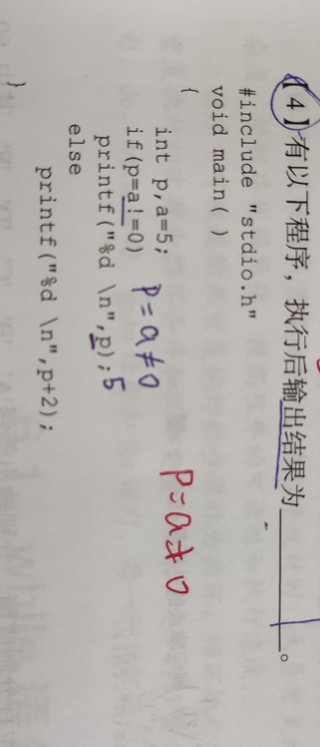 【4】有以下程序，执行后输出结果为________。
#include "stdio.h"
void main( )
{
int p,a=5;
if(p=a!=0) p=a≠0 p=a≠0
printf("%d \n",p); 5
else
printf("%d \n",p+2);
}